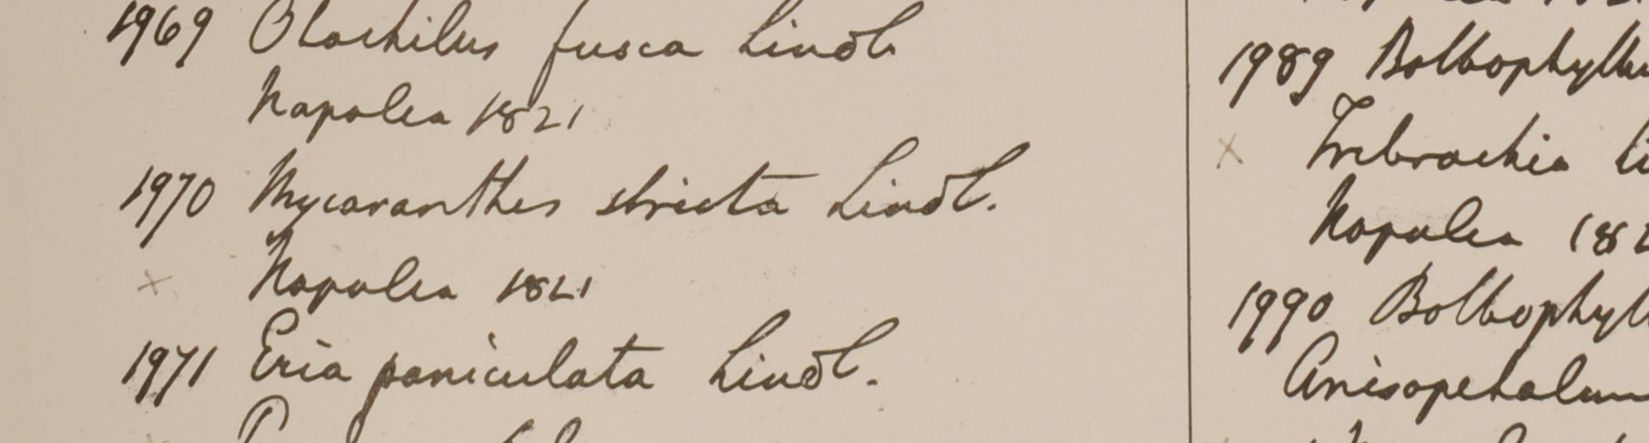 1969 Otochilus fusca Lindl.
Napalea 1821
1970 Mycaranthes stricta Lindl.
x Napalea 1821
1971 Eria paniculata Lindl.
1989 Bolbophyllu
x Trebrachia Li
Napalea 182
1990 Bolbophyll
Anisopetalum